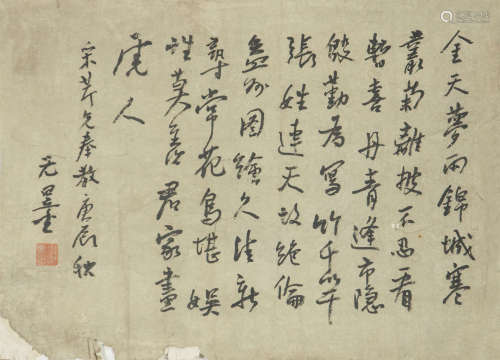 金天夢雨錦城寒
叢菊離披不忍看
暫喜丹青逢市隱
殷勤為寫竹千竿
張姓達天設絕倫
益州圖繪久清新
尋常花鳥堪娛
性莫羨君家畫
虎人
宋芹兄奉教庚辰秋